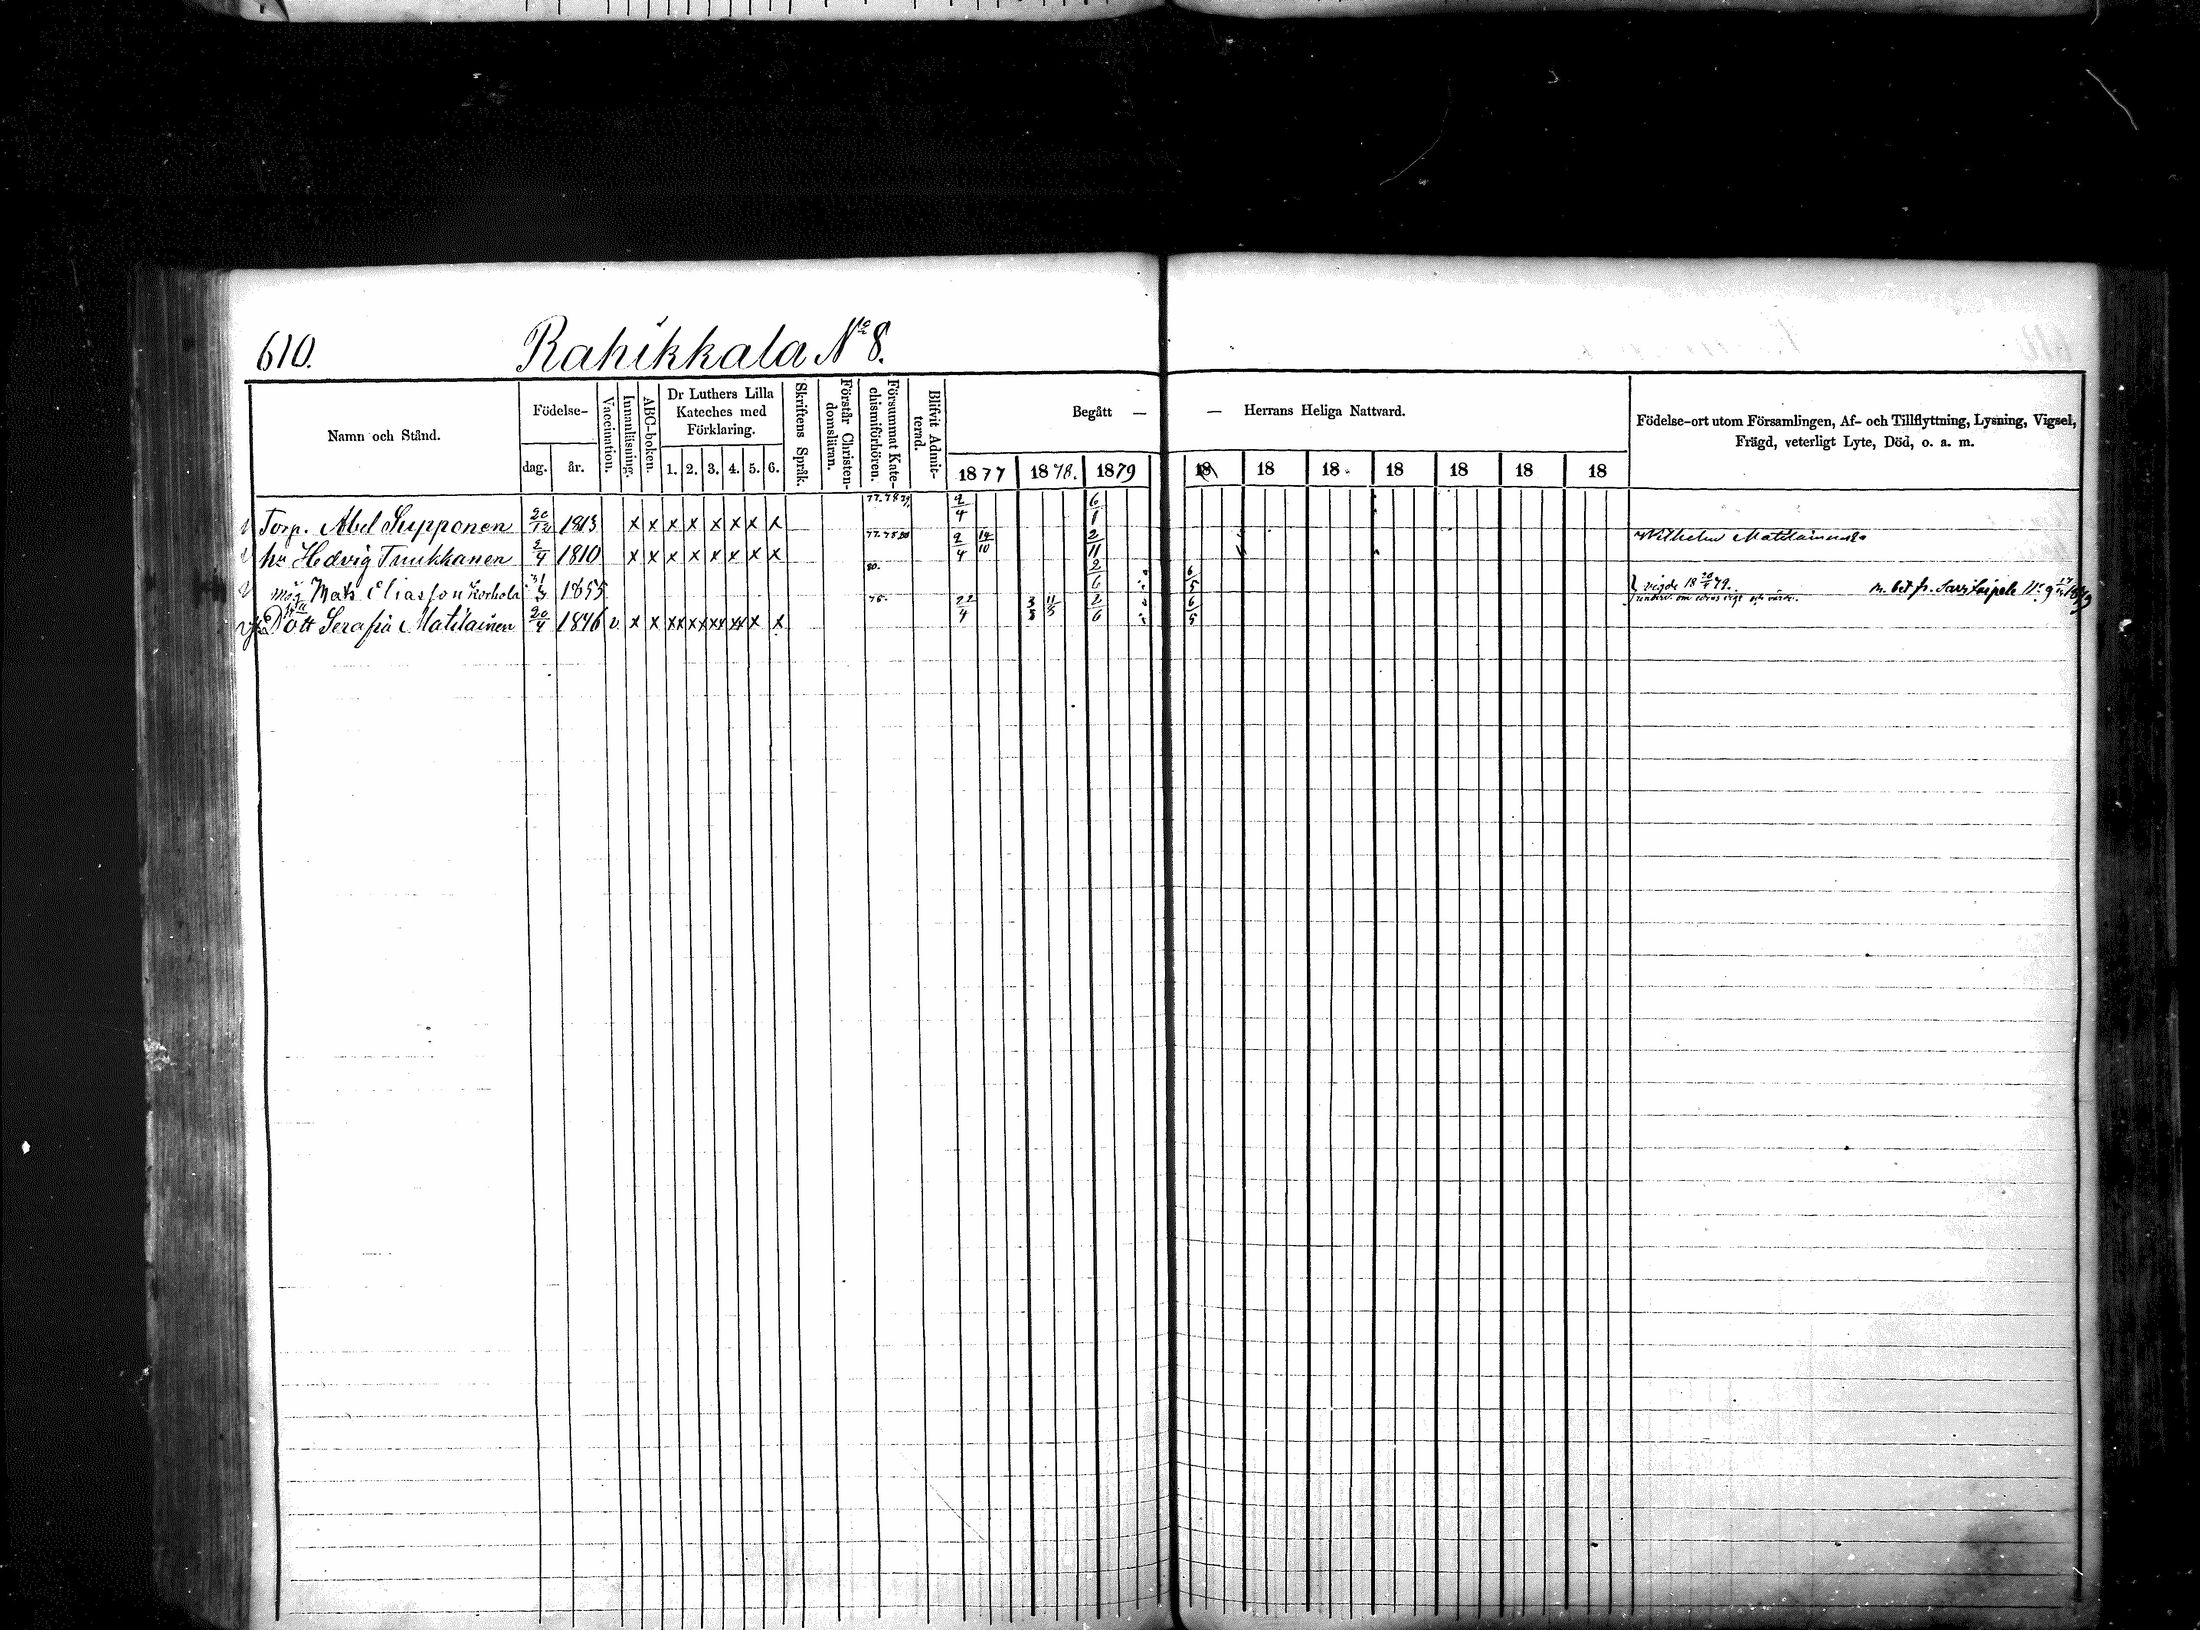 610. Rahikkala No 8.
Namn och Stånd. Födelse- dag. år. Vaccination. Innanläsning. ABC-boken. Dr Luthers Lilla Kateches med Förklaring. 1. 2. 3. 4. 5. 6. Skriftens Språk. Förstår Christendomsläran. Försummat Katechismiförhören. Blifvit Admitterad. Begått — — Herrans Heliga Nattvard. Födelse-ort utom Församlingen, Af- och Tillflyttning, Lysning, Vigsel, Frägd, veterligt Lyte, Död, o. a. m.
1877 1878. 1879 18 18 18 18 18 18 18
Torp. Abel Supponen 20/12 1813 x x x x x x x x 77. 78 79. 2/4 6/1
hu Hedvig Tuukkanen 2/4 1810 x x x x x x x x 77. 78 80 2/4 14/10 2/11 Wilhelm Matilainens
måg Mats Eliasson Korhola 1855 80. 2/6 6/5 vigde 18 20/4 79. m. bet. fr. Savitaipale No 9
Dott Serafia Matilainen 20/4 1846 v x x xx xx xx xx x x 78. 22/4 3/3 11/5 2/6 6/5